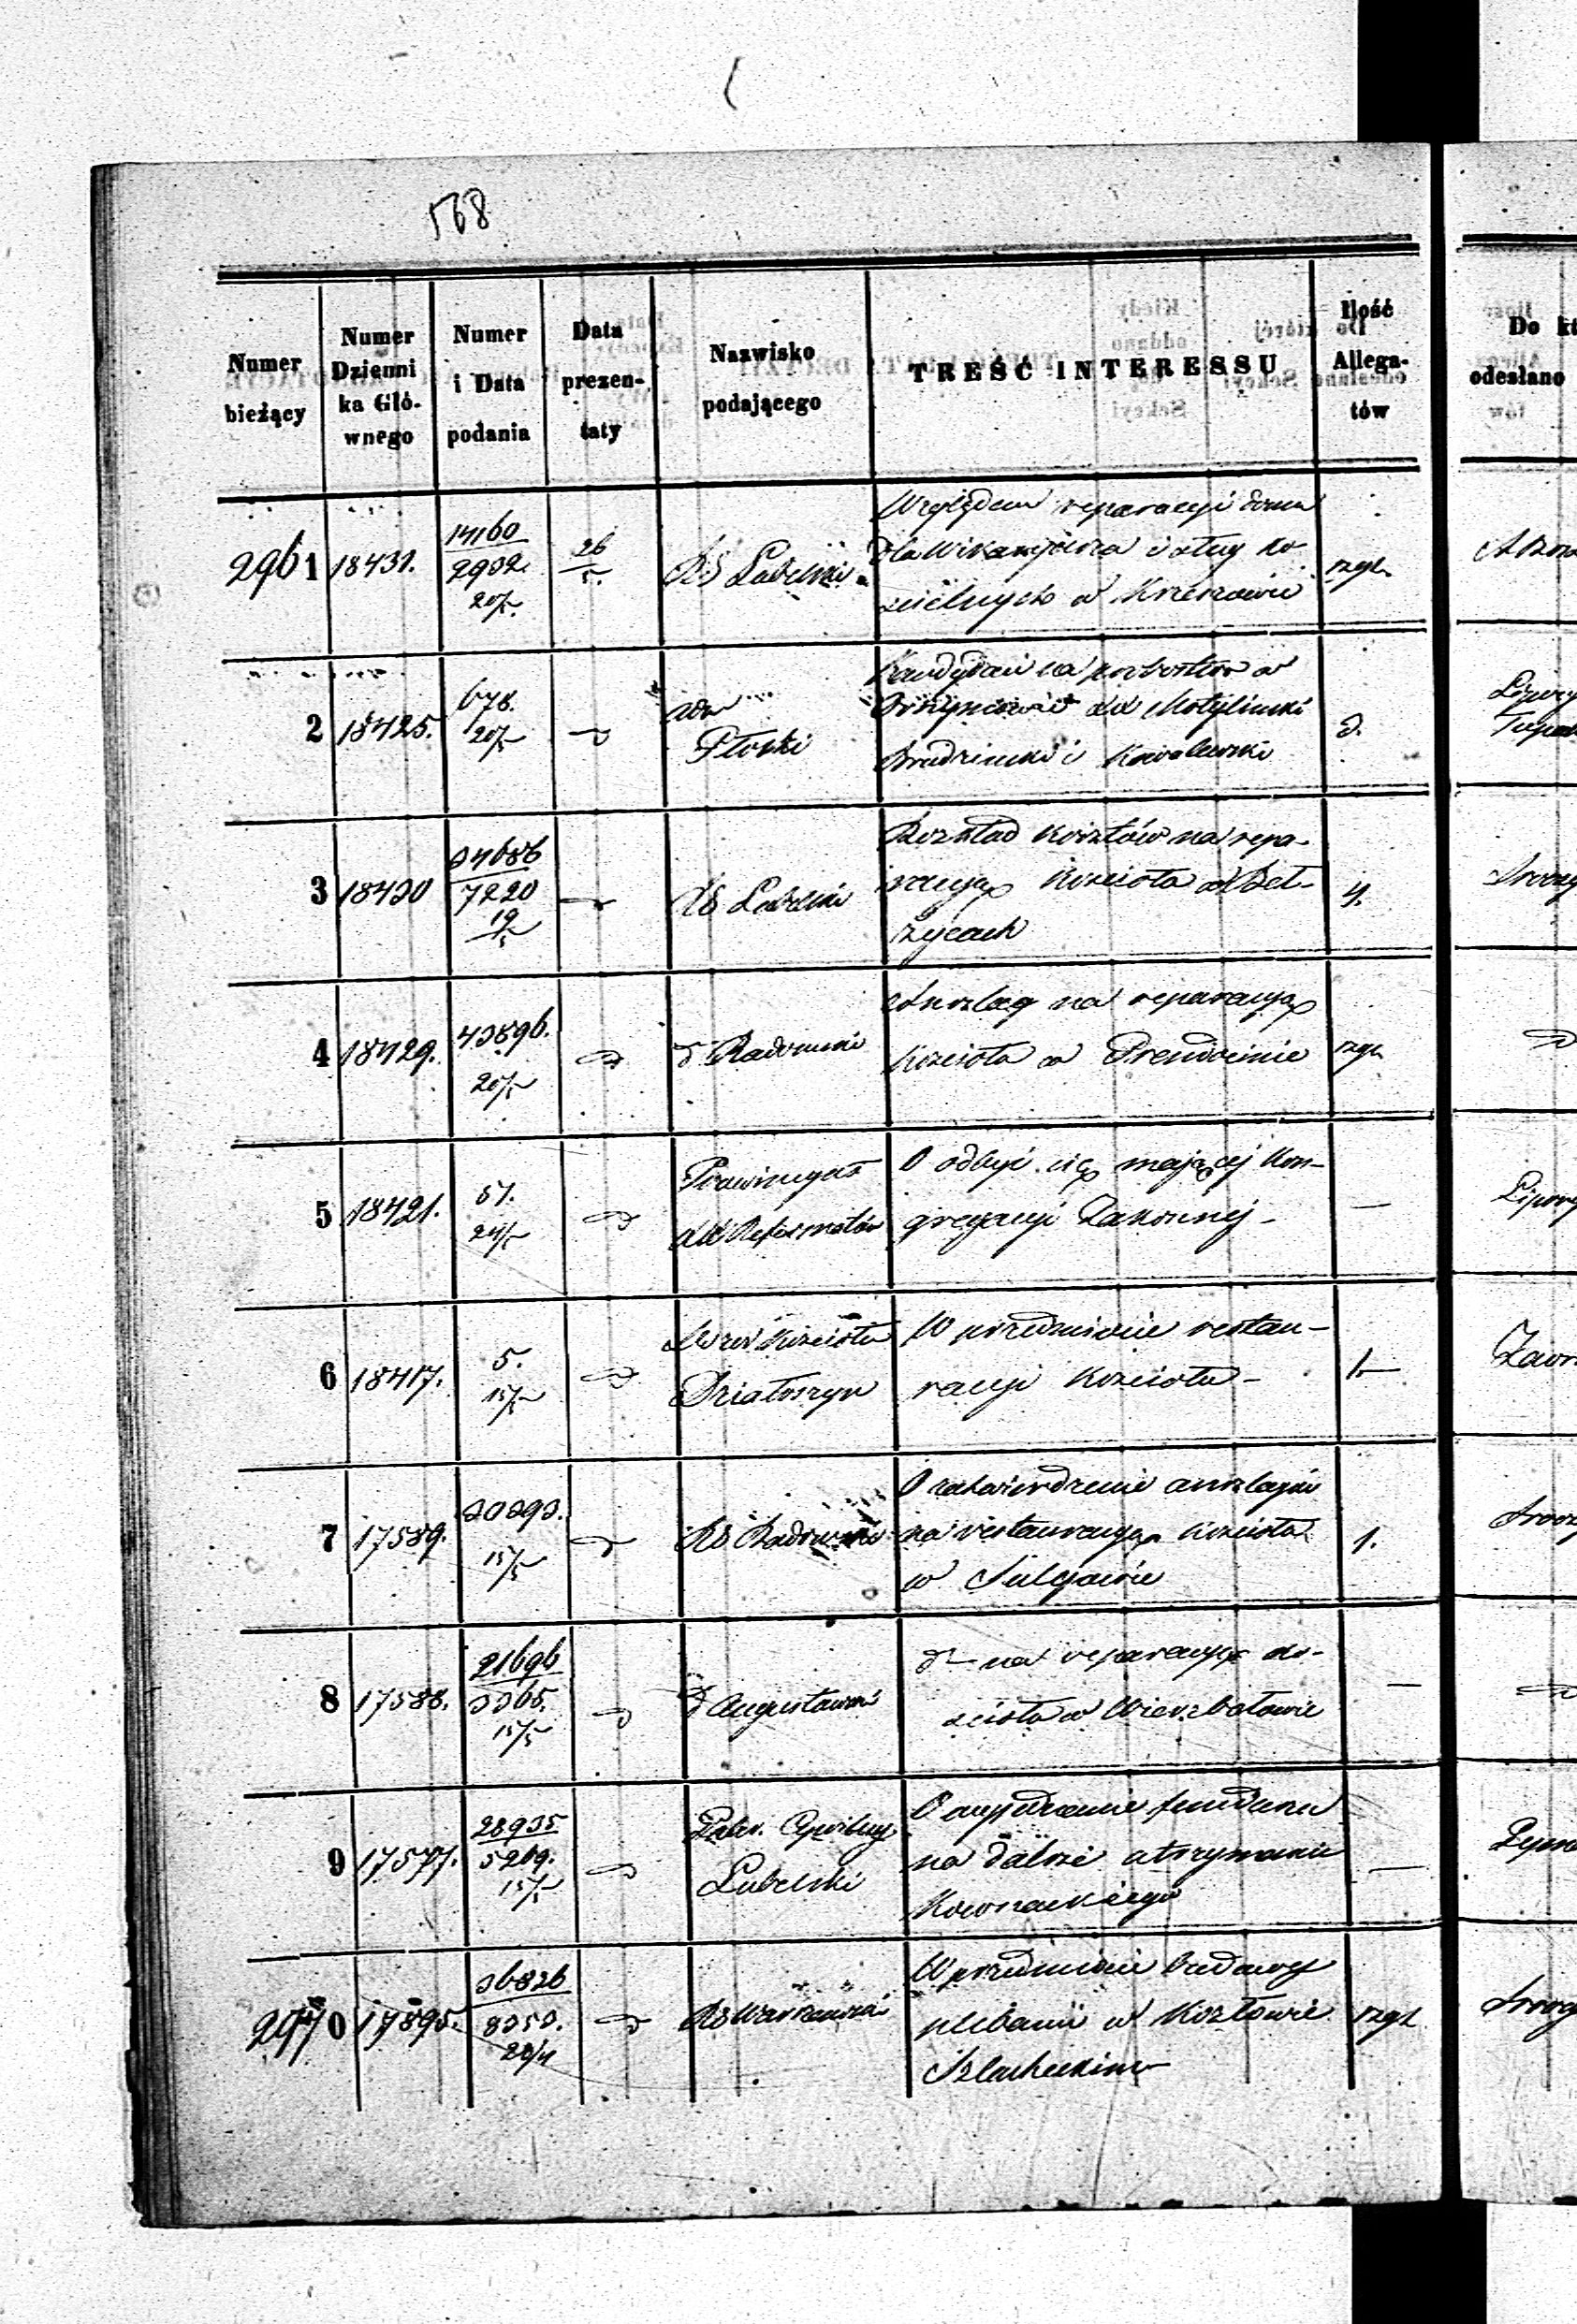 568
Numer bieżący
Numer Dzienni ka Głó- wnego
Numer i Data podania
Data prezen- taty
Nazwisko podającego
TREŚĆ INTERESSU
Ilość Allega- tów
Do kt
odesłano
2961 18431. 14160 2932. 20/5. 26/5. RG Lubelski
Względem reparacyi domu
dla Wikaryusza i sług ko
ścielnych w Krzeszowie
2 18425. 678. 20/5 Adm
Płocki
Kandydaci na probostwo w
XX Motyliński
Brudzinski i Kowalewski
d.
3 18430 34686 7220 19/5 RG Lubelski
Rozkład kosztów na repa-
racyą Kościoła w Beł-
życach
4.
4 18429. 43896. 20/5 d Radomski
Anszlag na reparacyą
Kościoła w Prendocinie
5 18421. 57. 24/5 Prowincyał
XX Reformatów
O odbyć się mającej Kon-
gregacyi Zakonnej -
—
6 18417. 5. 15/5 Dozór Kościoła
Działoszyn
W przedmiocie restau-
racyi Kościoła -
1.—
7 17589. 30393. 15/5 RG Radomski
O zatwierdzenie anszlagów
na restauracyą Kościoła
w Sulejowie
1.
8 17588. 21696 3365. 15/5 d Augustowski
d— na reparacyą ko-
ścioła w Wierzbołowie
—
9 17577. 28935 5269. 15/5 Guber. Cywilny
Lubelski
O wyjednanie funduszu
na dalsze utrzymanie
Kownackiego
—
2970 17895. 36826 8353. 28/4 RG Warszawski
W przedmiocie budowy
plebanii w Kozłowie
Szlacheckim